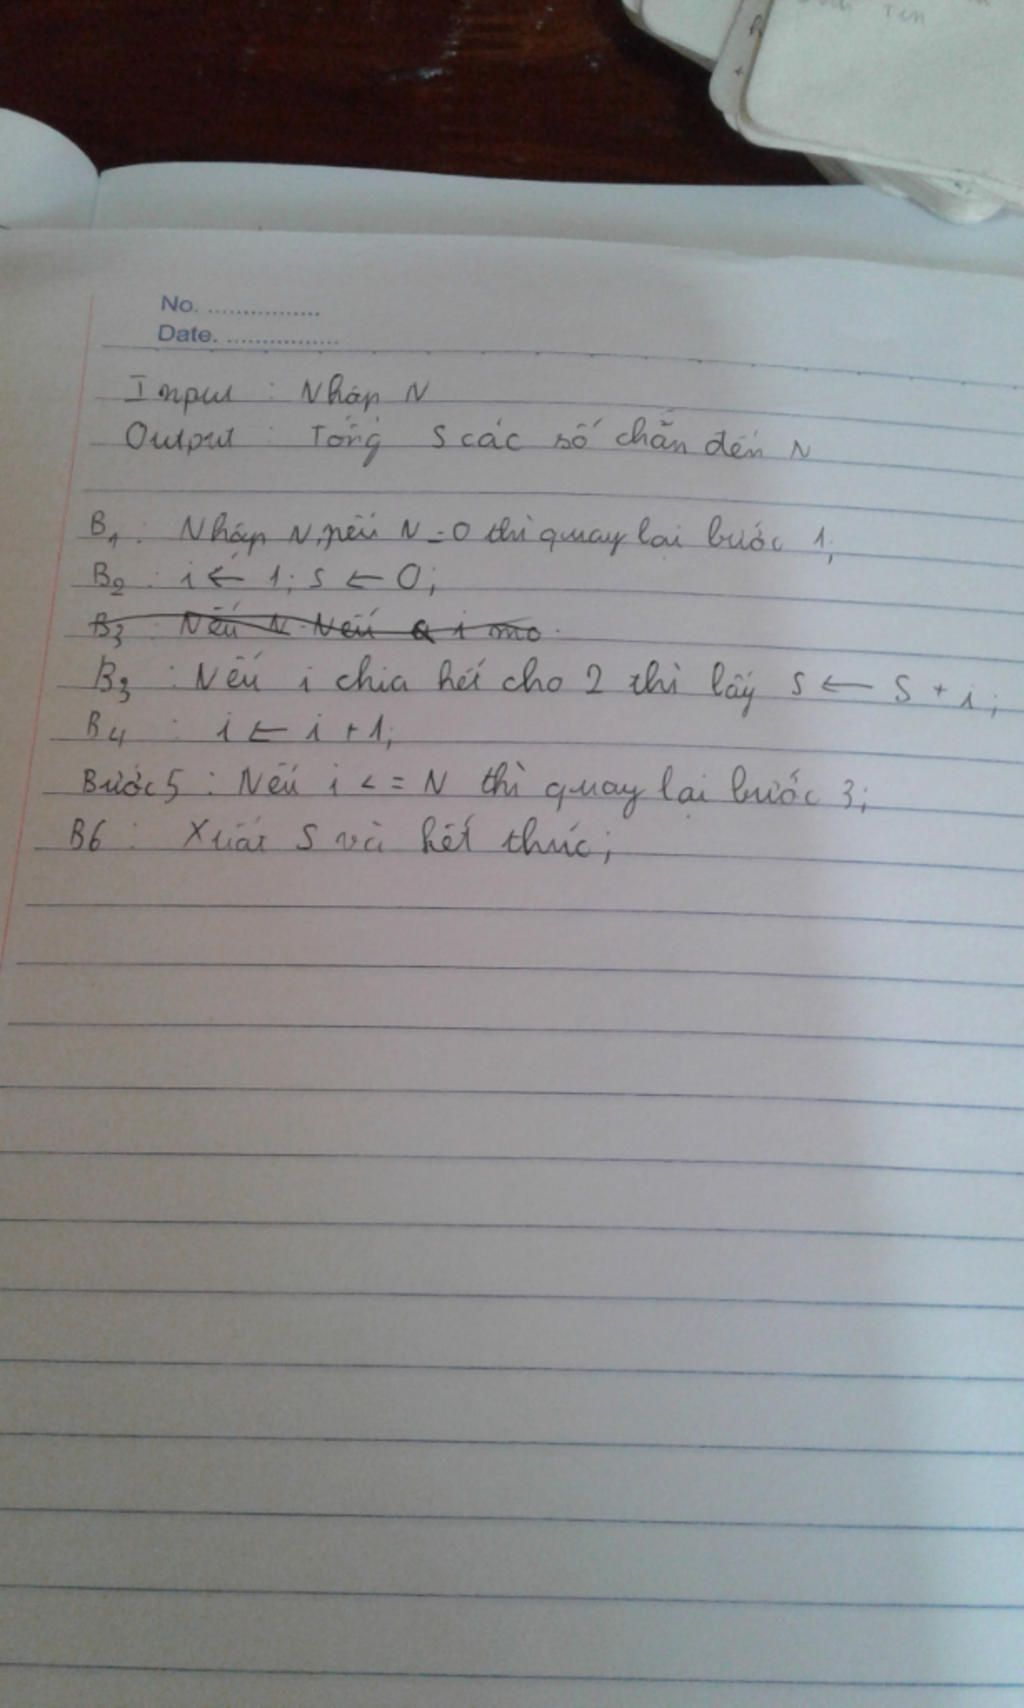 No. ................
Date. ................
Input : Nhập N
Output : Tổng S các số chẵn đến N
B1 : Nhập N, nếu N = 0 thì quay lại bước 1;
B2 : i ← 1; S ← 0;
B3 : Nếu N Nếu i mo
B3 : Nếu i chia hết cho 2 thì lấy S ← S + i;
B4 : i ← i + 1;
Bước 5 : Nếu i <= N thì quay lại bước 3;
B6 : Xuất S và kết thúc;